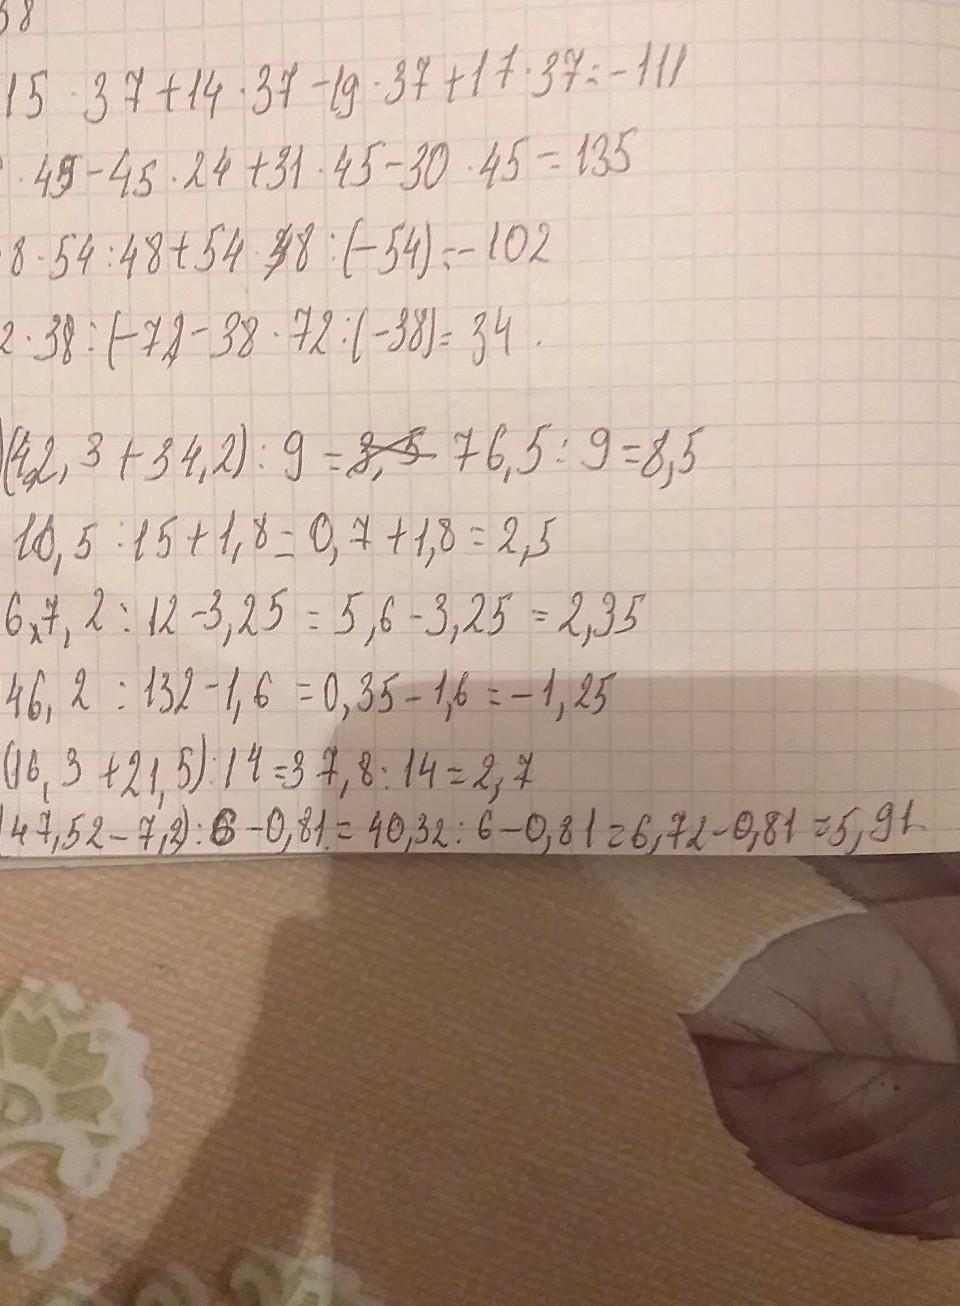 38
15 · 37 + 14 · 37 - 19 · 37 + 17 · 37 = -111
· 45 - 45 · 24 + 31 · 45 - 30 · 45 = 135
8 · 54 : 48 + 54 · 48 : (-54) = -102
2 · 38 : (-72 - 38 · 72 : (-38) = 34 .
(42,3 + 34,2) : 9 = 76,5 : 9 = 8,5
10,5 : 15 + 1,8 = 0,7 + 1,8 = 2,5
67,2 : 12 - 3,25 = 5,6 - 3,25 = 2,35
46,2 : 132 - 1,6 = 0,35 - 1,6 = -1,25
(16,3 + 21,5) : 14 = 37,8 : 14 = 2,7
(47,52 - 7,2) : 6 - 0,81 = 40,32 : 6 - 0,81 = 6,72 - 0,81 = 5,91